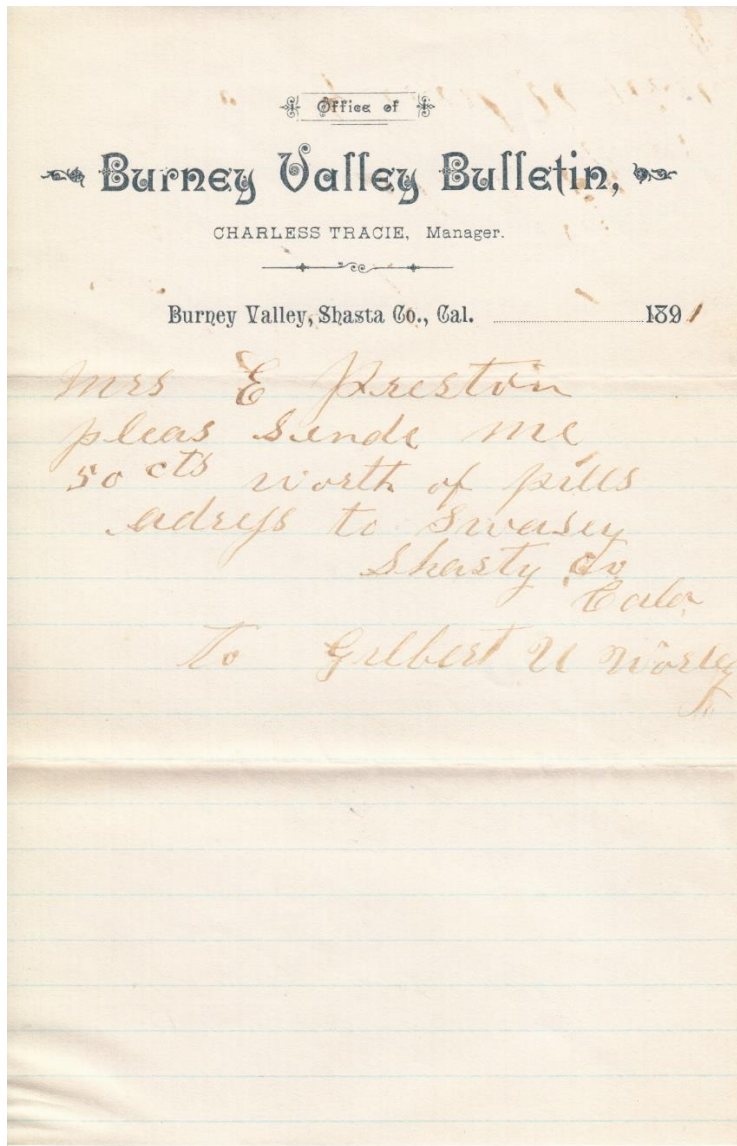 Office of
Burney Valley Bulletin,
CHARLESS TRACIE, Manager.
Burney Valley, Shasta Co., Cal. 1891
Mrs E Preston
pleas Sende me
50 cts worth of pills
adress to Swasey
Shasty Co
to Gilbert U Worley